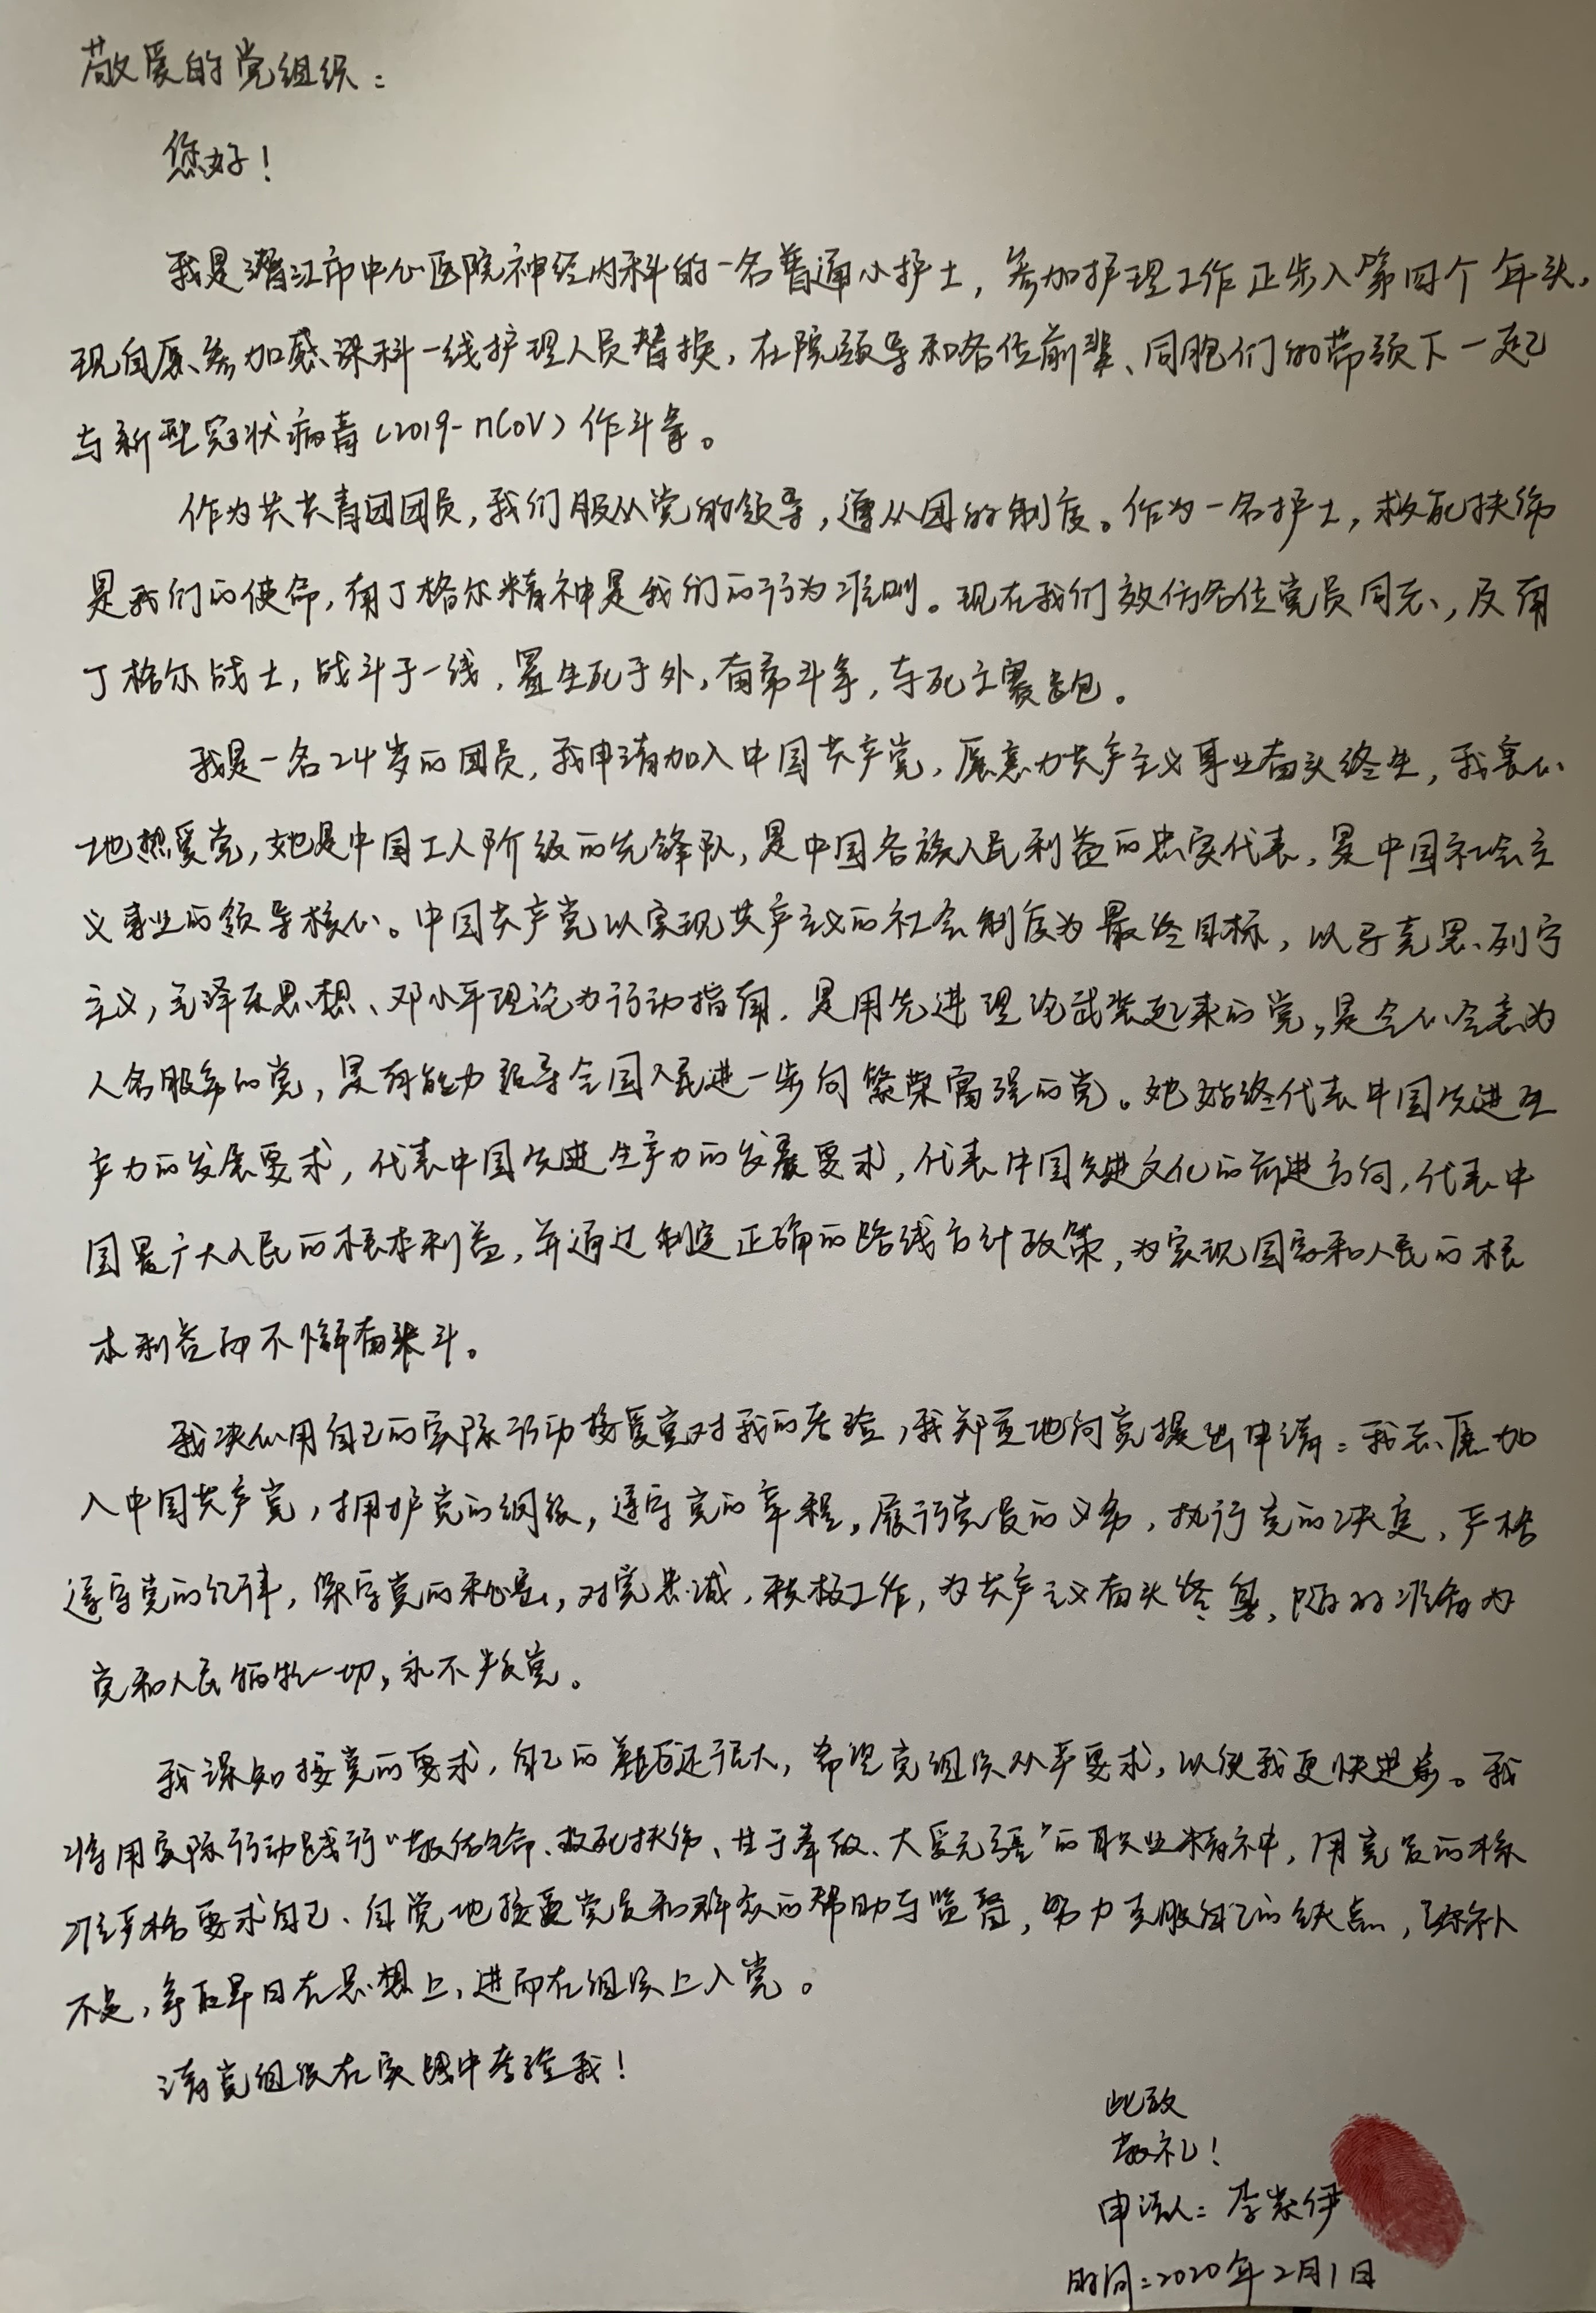 敬爱的党组织：
您好！
我是潜江市中心医院神经内科的一名普通小护士，参加护理工作正步入第四个年头，
现自愿参加感染科一线护理人员替换，在院领导和各位前辈、同胞们的带领下一起
与新型冠状病毒（2019-nCoV）作斗争。
作为共共青团团员，我们服从党的领导，遵从团的制度。作为一名护士，救死扶伤
是我们的使命，南丁格尔精神是我们的行为准则。现在我们效仿各位党员同志，及南
丁格尔战士，战斗于一线，置生死于外，奋勇斗争，
我是一名24岁的团员，我申请加入中国共产党，愿意为共产主义事业奋斗终生，我衷心
地热爱党，她是中国工人阶级的先锋队，是中国各族人民利益的忠实代表，是中国社会主
义事业的领导核心。中国共产党以实现共产主义的社会制度为最终目标，以马克思、列宁
主义，毛泽东思想、邓小平理论为行动指南，是用先进理论武装起来的党，是全心全意为
人名服务的党，是有能力领导全国人民进一步向繁荣富强的党。她始终代表中国先进生
产力的发展要求，代表中国先进生产力的发展要求，代表中国先进文化的前进方向，代表中
国最广大人民的根本利益，并通过制定正确的路线方针政策，为实现国家和人民的根
本利益而不懈奋斗。
我决心用自己的实际行动接受党对我的考验，我郑重地向党提出申请：我志愿加
入中国共产党，拥护党的纲领，遵守党的章程，履行党员的义务，执行党的决定，严格
遵守党的纪律，保守党的秘密，对党忠诚，积极工作，为共产主义奋斗终身，随时准备为
党和人民牺牲一切，永不判党。
我深知按党的要求，自己的差距还很大，希望党组织从严要求，以使我更快进步。我
将用实际行动践行“敬佑生命、救死扶伤、甘于奉献、大爱无疆”的职业精神，用党员的标
准严格要求自己、自觉地接受党员和群众的帮助与监督，努力克服自己的缺点，弥补
不足，争取早日在思想上，进而在组织上入党。
请党组织在实践中考验我！
此致
敬礼！
申请人：李紫伊
时间：2020年2月1日